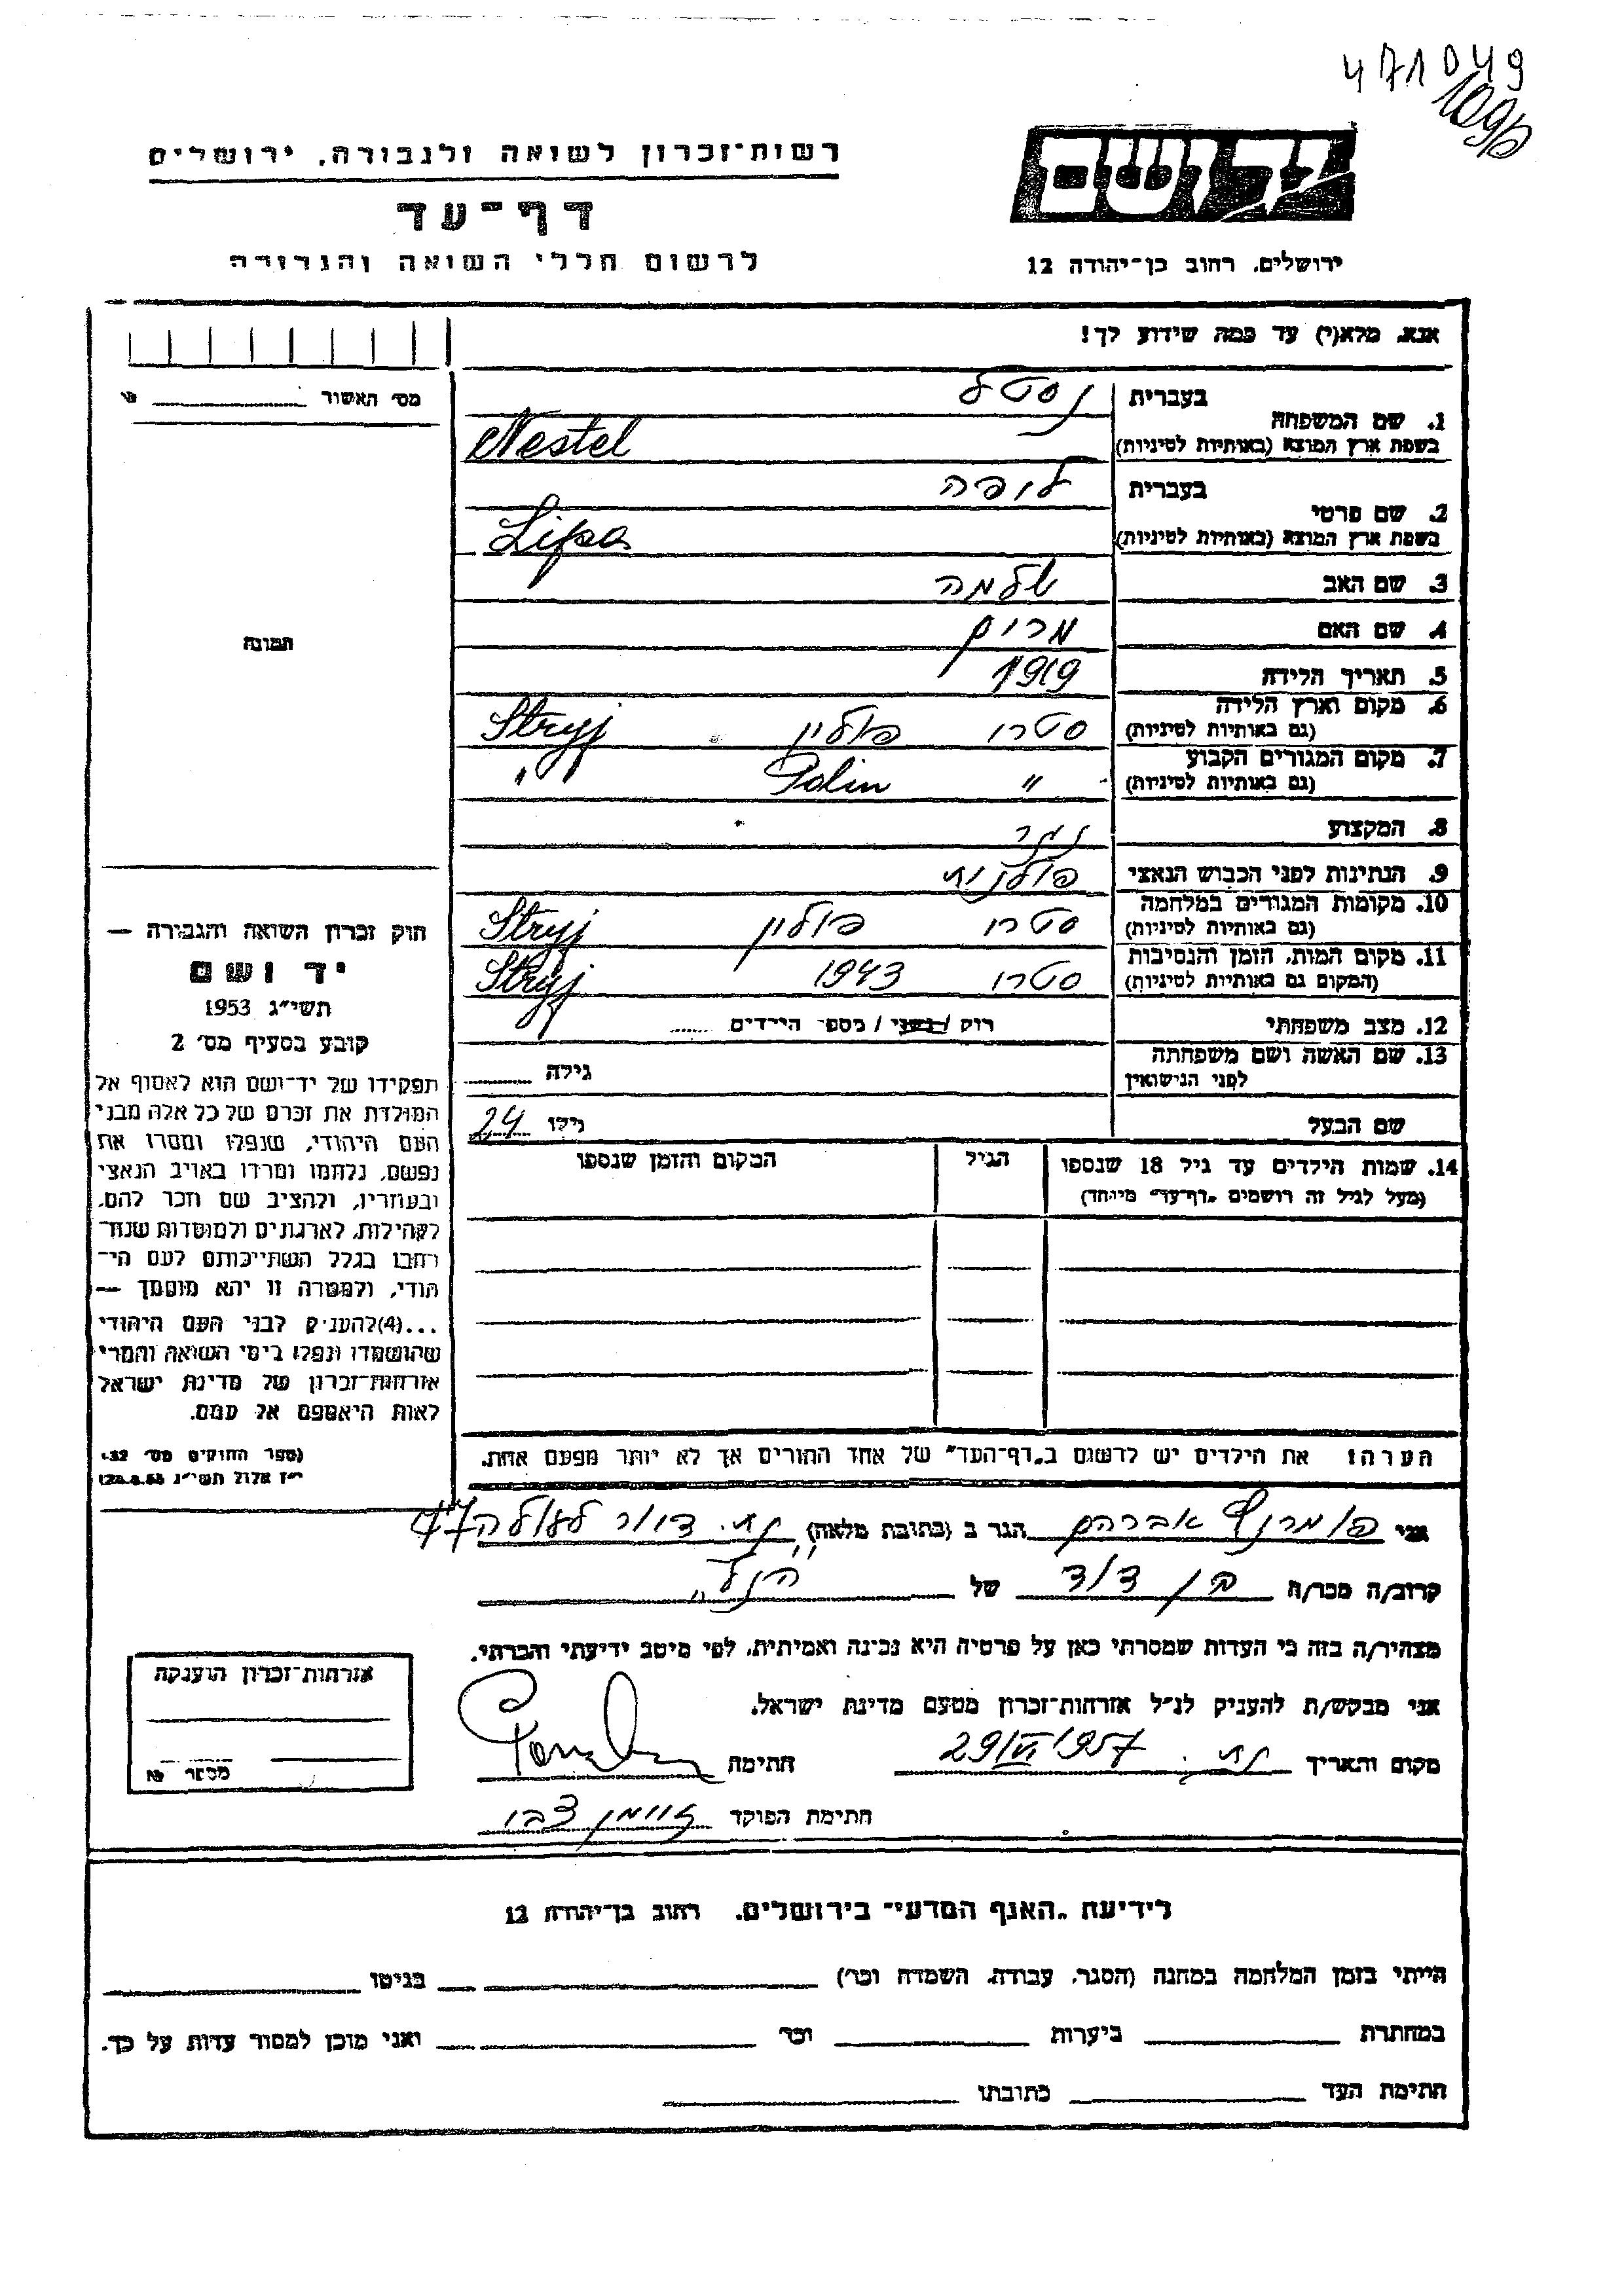 471049
יד ושם
רשות־זכרון לשואה ולגבורה, ירושלים
דף־עד
לרשום חללי השואה והגבורה
ירושלים, רחוב בן־יהודה 12
אנא, מלא(י) עד כמה שידוע לך!
מס׳ האשור
1. שם המשפחה בעברית נסטל
בשפת ארץ המוצא (באותיות לטיניות) Nestel
2. שם פרטי בעברית ליפה
בשפת ארץ המוצא (באותיות לטיניות) Lipa
3. שם האב שלמה
4. שם האם מרים
5. תאריך הלידה 1919
6. מקום וארץ הלידה (גם באותיות לטיניות) סטרי פולין Stryj
7. מקום המגורים הקבוע (גם באותיות לטיניות) " Polin " "
8. המקצוע נגר
9. הנתינות לפני הכבוש הנאצי פולנית
10. מקומות המגורים במלחמה (גם באותיות לטיניות) סטרי פולין Stryj
11. מקום המות, הזמן והנסיבות (המקום גם באותיות לטיניות) סטרי 1943 Stryj
12. מצב משפחתי רוק / נשוי / מספר הילדים
13. שם האשה ושם משפחתה לפני הנישואין גילה
שם הבעל גילו 24
14. שמות הילדים עד גיל 18 שנספו הגיל המקום והזמן שנספו
(מעל לגיל זה רושמים „דף־עד״ מיוחד)
הערה: את הילדים יש לרשום ב„דף־העד״ של אחד ההורים אך לא יותר מפעם אחת.
תמונה
חוק זכרון השואה והגבורה —
יד ושם
תשי״ג 1953
קובע בסעיף מס׳ 2
תפקידו של יד־ושם הוא לאסוף אל
המולדת את זכרם של כל אלה מבני
העם היהודי, שנפלו ומסרו את
נפשם, נלחמו ומרדו באויב הנאצי
ובעוזריו, ולהציב שם וזכר להם,
לקהילות, לארגונים ולמוסדות שנח־
רבו בגלל השתייכותם לעם הי־
הודי, ולמטרה זו יהא מוסמך —
...(4)להעניק לבני העם היהודי
שהושמדו ונפלו בימי השואה והמרי
אזרחות־זכרון של מדינת ישראל
לאות היאספם אל עמם.
(ספר החוקים מס׳ 132
י״ז אלול תשי״ג 28.8.53)
אני אברהם הגר ב (כתובת מלאה) 47
קרוב/ה מכר/ה בן דוד של "הנ״ל"
מצהיר/ה בזה כי העדות שמסרתי כאן על פרטיה היא נכונה ואמיתית, לפי מיטב ידיעתי והכרתי.
אני מבקש/ת להעניק לנ״ל אזרחות־זכרון מטעם מדינת ישראל.
מקום והתאריך 29/VI 1957 חתימה
חתימת הפוקד צבי
אזרחות־זכרון הוענקה
מספר
לידיעת „האגף המדעי״ בירושלים, רחוב בן־יהודה 12
הייתי בזמן המלחמה במחנה (הסגר, עבודה, השמדה וכו׳) בגיטו
במחתרת ביערות וכו׳ ואני מוכן למסור עדות על כך.
חתימת העד כתובתו